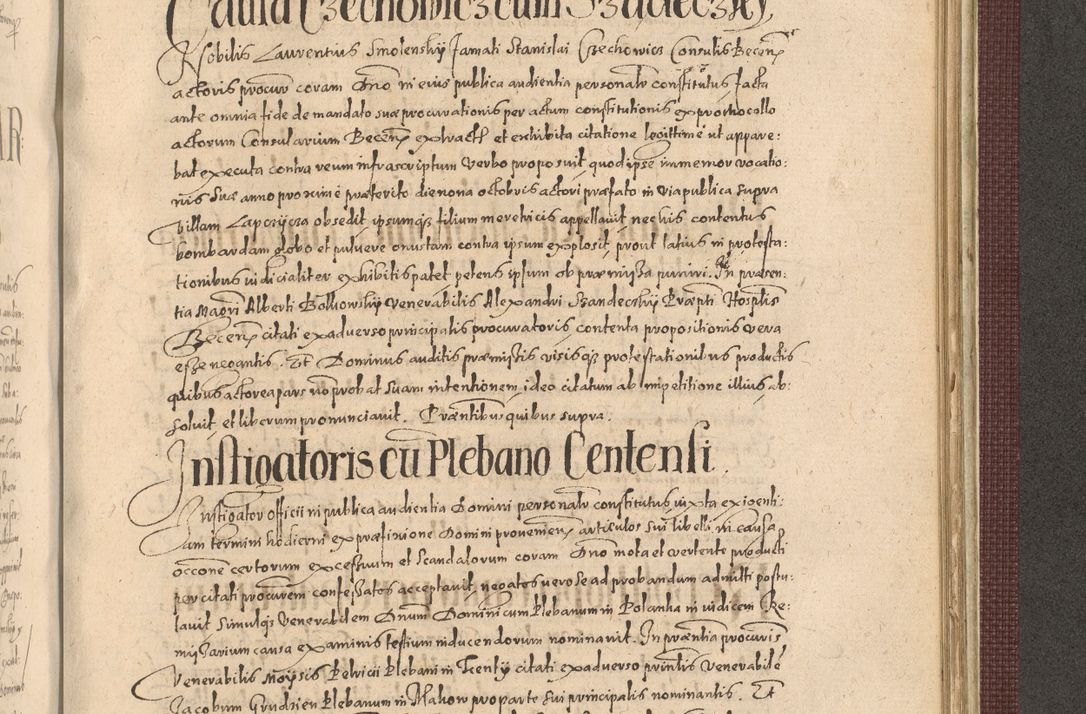 Causa Czechowicz cum Szadeczky
Nobilis Laurentius Smolenskÿ famati Stanislai Czechowicz Consulis Becen̄
actoris procur coram Dno in eius publica audientia personalr constitutus facta
ante omnia fide de mandato suæ procurationis per actum constitutionis ex prothocollo
actorum Consularium Becen̄ extract et exhibita citatione legittime ut appare:
bat executa contra reum infrascriptum verbo proposuit quod ipse immemor vocatio:
nis suæ anno proxime præterito die nona octobris actori præfato in via publica supra
villam Lapczycza obsedit, ipsumqz filium meretricis appellavit, nec his contentus
bombardam globo et pulvere onustam contra ipsum explosit, prout latius in protesta:
tionibus iudicialiter exhibitis patet petens ipsum ob præmissa puniri. In præsen:
tia Magri Alberti Bolkowskÿ venerabilis Alexandri Szandeczkÿ Præpti Hosplis
Becen̄ citati ex adverso principalis procuratoris contenta propositionis vera
esse negantis. Et Dominus auditis præmissis visisqz protestationibus productis
quibus actorea pars nō probat suam intentionem, ideo citatum ab impetitione illius ab:
soluit, et liberum pronunciavit. Præntibus quibus supra.
Instigatoris cū Plebano Centensi.
Instigator officii in publica audientia Domini personalr constitutus iuxta exigenti:
am termini hodierni ex præfixione Domini provenien̄ articulos sui libelli in causa
occone certorum excessuum et scandalorum coram Dno mota et vertente producti
per citati procurem contestatos acceptavit, negatos vero se ad probandum admitti postu:
lavit simulqz venerabilem Dnum Dominicum Plebanum in Polanka in iudicem Re:
missarium causa examinis testium inducendorum nominavit. In præntia procuris
venerabilis Moÿsis Petricii Plebani in Centÿ citati ex adverso prinlis venerabile
Jacobum Grudzien Plebanum in Makow pro parte sui principalis nominantis. Et